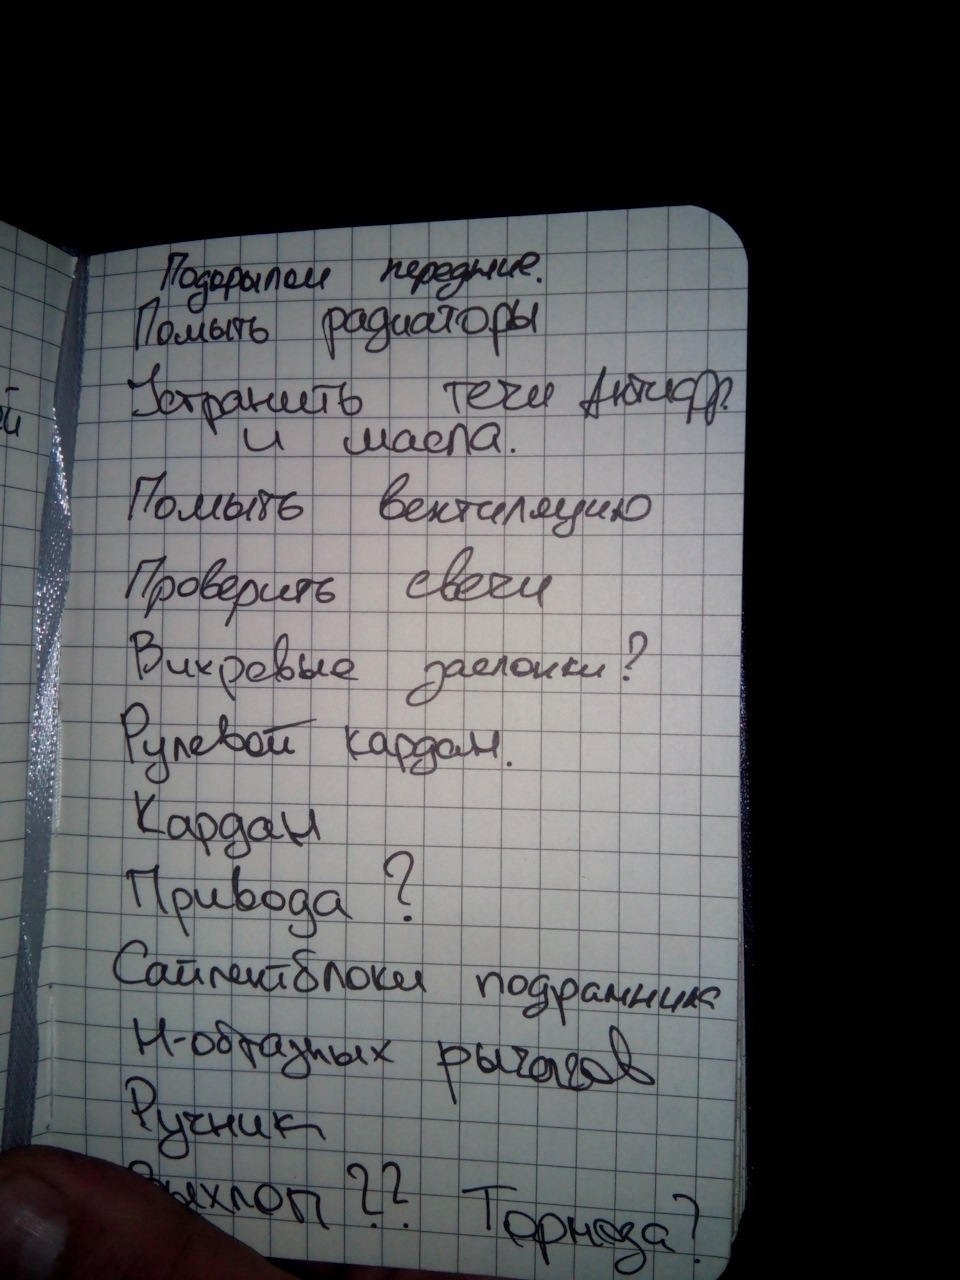 Подкрылки передние.
Помыть радиаторы
Устранить течи Антифр.
и масла.
Помыть вентиляцию
Проверить свечи
Вихревые заслонки?
Рулевой кардан.
Кардан
Привода?
Сайлентблоки подрамника
Н-образных рычагов
Ручник
Выхлоп?? Тормоза?